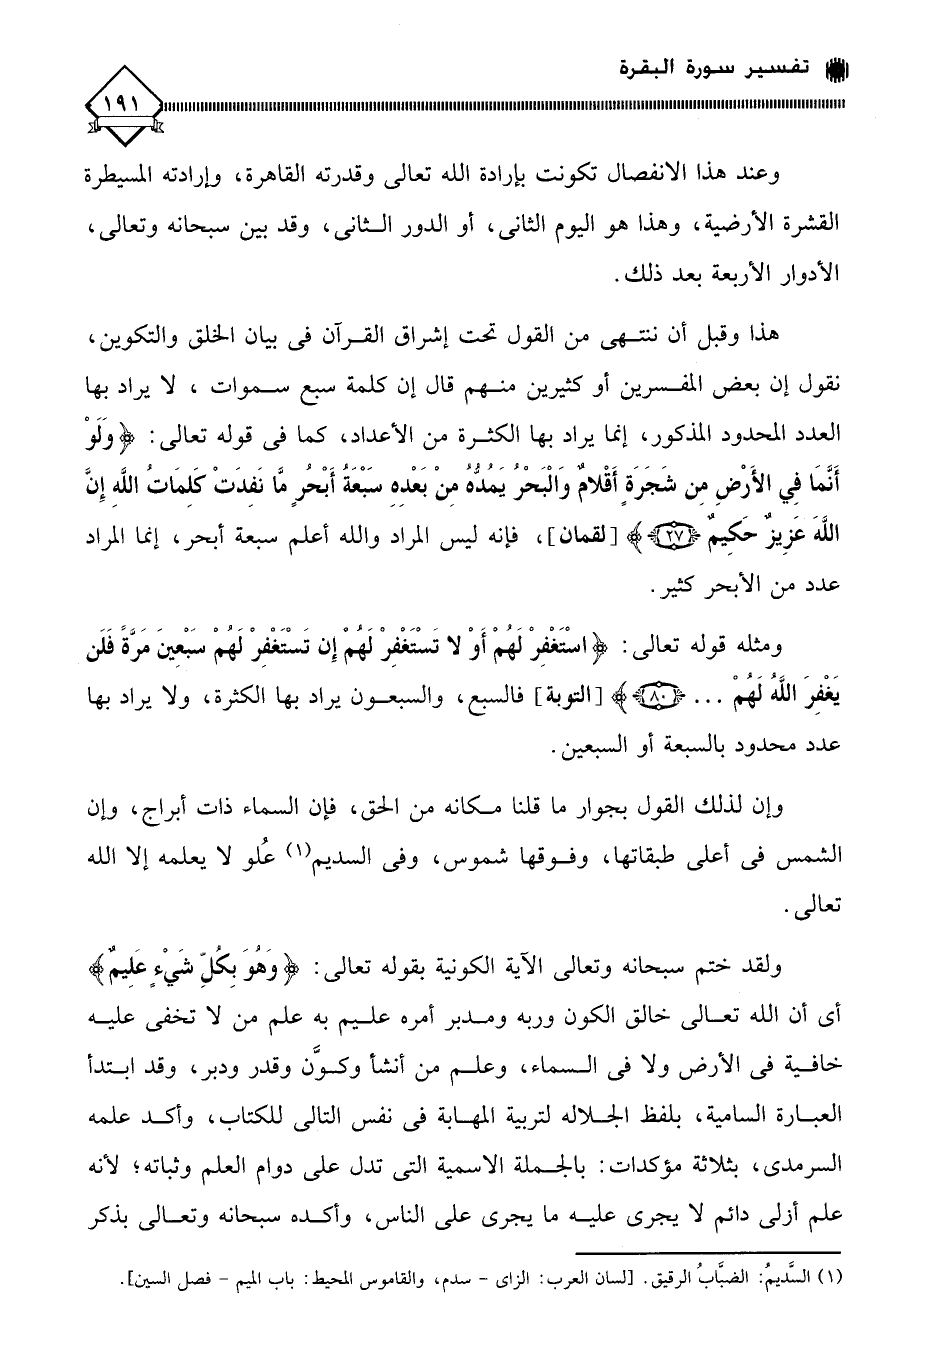 تفسير سورة البقرة
١٩١
وعند هذا الانفصال تكونت بإرادة الله تعالى وقدرته القاهرة، وإرادته المسيطرة
القشرة الأرضية، وهذا هو اليوم الثانى، أو الدور الثانى، وقد بين سبحانه وتعالى،
الأدوار الأربعة بعد ذلك.
هذا وقبل أن ننتهى من القول تحت إشراق القرآن فى بيان الخلق والتكوين،
نقول إن بعض المفسرين أو كثيرين منهم قال إن كلمة سبع سموات ، لا يراد بها
العدد المحدود المذكور، إنما يراد بها الكثرة من الأعداد، كما فى قوله تعالى: ﴿وَلَوْ
أَنَّمَا فِي الأَرْضِ مِن شَجَرَةٍ أَقْلامٌ وَالْبَحْرُ يَمُدُّهُ مِنْ بَعْدِهِ سَبْعَةُ أَبْحُرٍ مَّا نَفِدَتْ كَلِمَاتُ اللَّهِ إِنَّ
اللَّهَ عَزِيزٌ حَكِيمٌ ﴿٢٧﴾﴾ [لقمان]، فإنه ليس المراد والله أعلم سبعة أبحر، إنما المراد
عدد من الأبحر كثير.
ومثله قوله تعالى: ﴿اسْتَغْفِرْ لَهُمْ أَوْ لا تَسْتَغْفِرْ لَهُمْ إِن تَسْتَغْفِرْ لَهُمْ سَبْعِينَ مَرَّةً فَلَن
يَغْفِرَ اللَّهُ لَهُمْ ... ﴿٨٠﴾﴾ [التوبة] فالسبع، والسبعون يراد بها الكثرة، ولا يراد بها
عدد محدود بالسبعة أو السبعين.
وإن لذلك القول بجوار ما قلنا مكانه من الحق، فإن السماء ذات أبراج، وإن
الشمس فى أعلى طبقاتها، وفوقها شموس، وفى السديم(١) عُلو لا يعلمه إلا الله
تعالى.
ولقد ختم سبحانه وتعالى الآية الكونية بقوله تعالى: ﴿وَهُوَ بِكُلِّ شَيْءٍ عَلِيمٌ﴾
أى أن الله تعالى خالق الكون وربه ومدبر أمره عليم به علم من لا تخفى عليه
خافية فى الأرض ولا فى السماء، وعلم من أنشأ وكوَّن وقدر ودبر، وقد ابتدأ
العبارة السامية، بلفظ الجلاله لتربية المهابة فى نفس التالى للكتاب، وأكد علمه
السرمدى، بثلاثة مؤكدات: بالجملة الاسمية التى تدل على دوام العلم وثباته؛ لأنه
علم أزلى دائم لا يجرى عليه ما يجرى على الناس، وأكده سبحانه وتعالى بذكر
(١) السَّديمُ: الضَّبَّابُ الرقيق. [لسان العرب: الزاى - سدم، والقاموس المحيط: باب الميم - فصل السين].